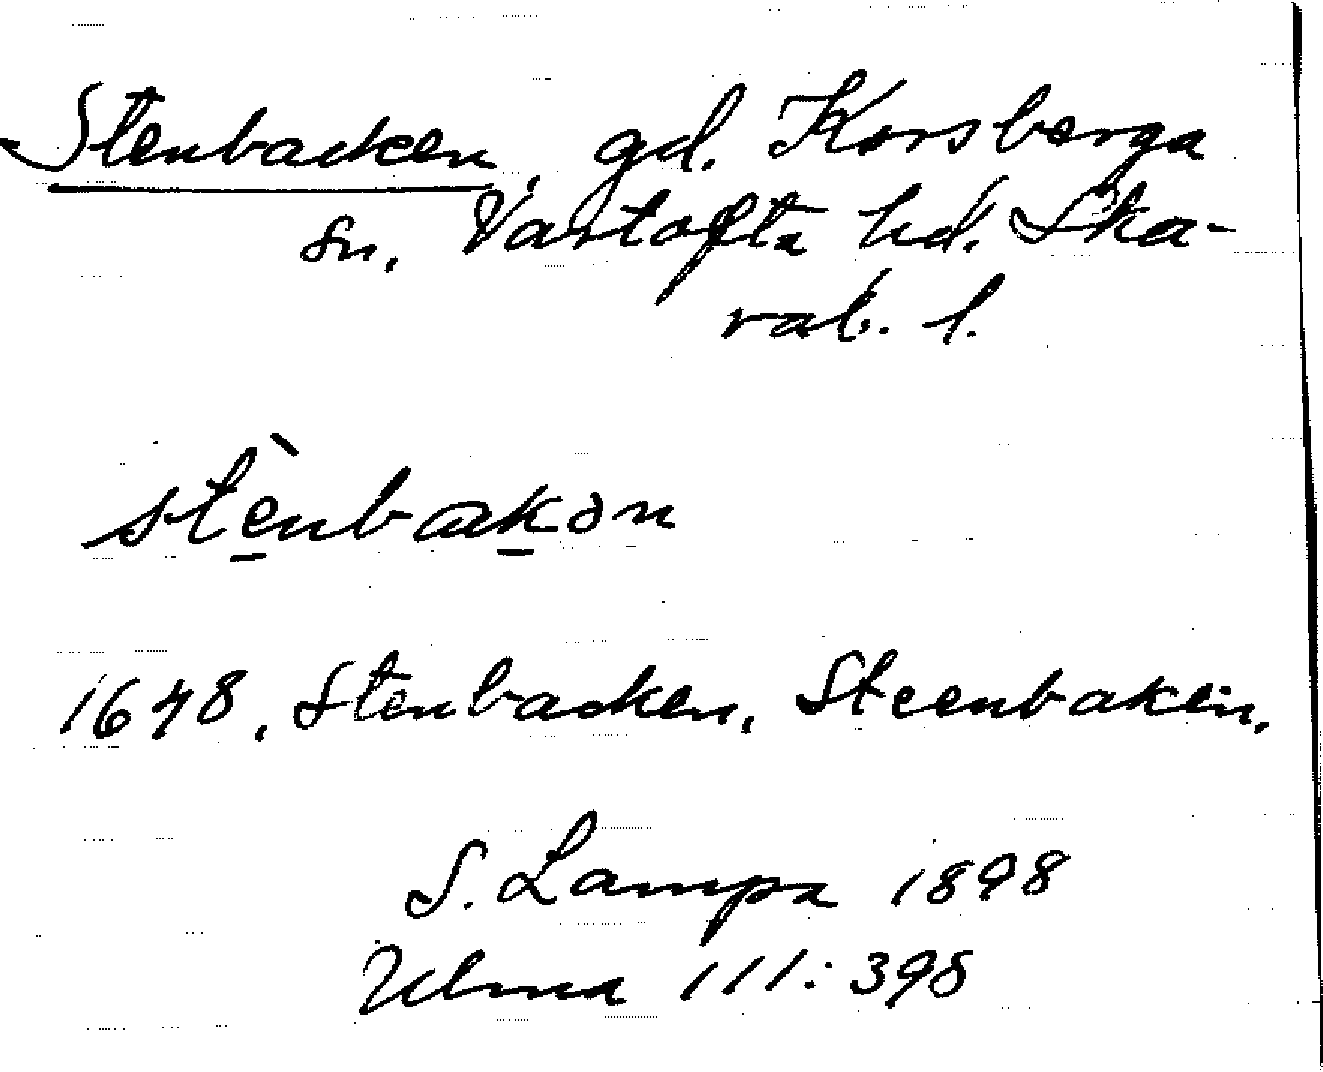 Stenbacken, gd. Korsberga
sn. Vartofta hd. Ska-
rab. l.
stènbakən
1648, Stenbacken, Steenbaken,
S. Lampa 1898
Ulma 111:398